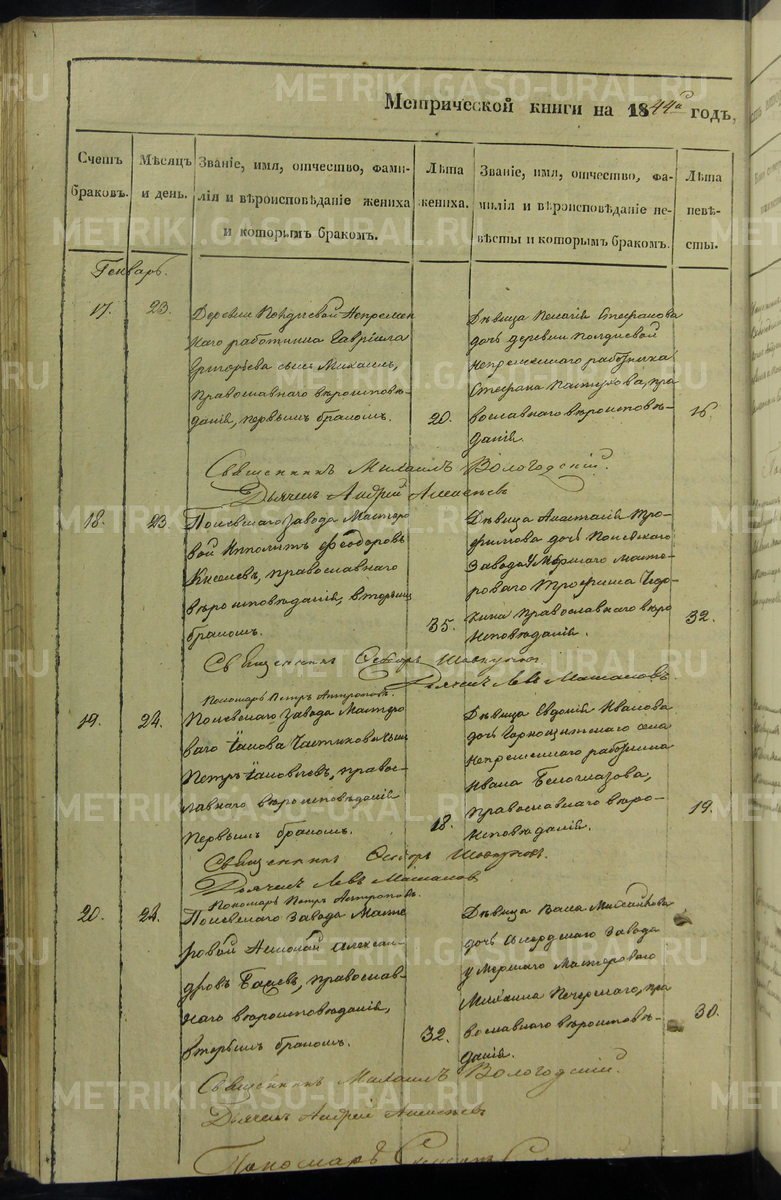 METRIKI.GASO-URAL.RU
Метрической книги на 1844й годъ,
Счетъ браковъ.
Мѣсяцъ и день.
Званіе, имя, отчество, фамилія и вѣроисповѣданіе жениха и которымъ бракомъ.
Лѣта жениха.
Званіе, имя, отчество, фамилія и вѣроисповѣданіе невѣсты и которымъ бракомъ.
Лѣта невѣсты.
Генварь.
17.
23.
Деревни Непремен
наго работника Гавріила
Григорьева сынъ Михаилъ,
Православнаго вѣроисповѣ-
данія, первымъ бракомъ.
20.
Дѣвица Пелагія Стефанова
дочь деревни
непременнаго работника
Стефана Пастухова, пра
вославнаго вѣроисповѣ-
данія.
16.
Священникъ Михаилъ Вологодскій.
Дьячекъ Андрей
18.
23.
Полевскаго завода Мастеро
вой Ипполитъ Феодоровъ
православнаго
вѣроисповѣданія, вторымъ
бракомъ.
35.
Дѣвица Анастасія Тро-
фимова дочь Полевскаго
завода умершаго Масте-
роваго Трофима
православнаго вѣро
исповѣданія.
32.
Священникъ
Дьячекъ Левъ
Пономарь Петръ Антроповъ.
19.
24.
Полевскаго завода Мастеро
ваго Іакова сынъ
Петръ Іаковлевъ, право-
славнаго вѣроисповѣданія
первымъ бракомъ.
18.
Дѣвица Евдокія Иванова
дочь села
непременнаго работника
Ивана Белоглазова,
православнаго вѣро-
исповѣданія.
19.
Священникъ
Дьячекъ Левъ
Пономарь Петръ Антроповъ.
20.
24.
Полевскаго завода Масте
ровой Алексан-
дровъ православ-
наго вѣроисповѣданія,
вторымъ бракомъ.
32.
Дѣвица Васса Михайлова
дочь Сысердскаго завода
умершаго Мастероваго
Михаила Печерскаго, пра
вославнаго вѣроисповѣ-
данія.
30.
Священникъ Михаилъ Вологодскій.
Дьячекъ Андрей
Пономарь